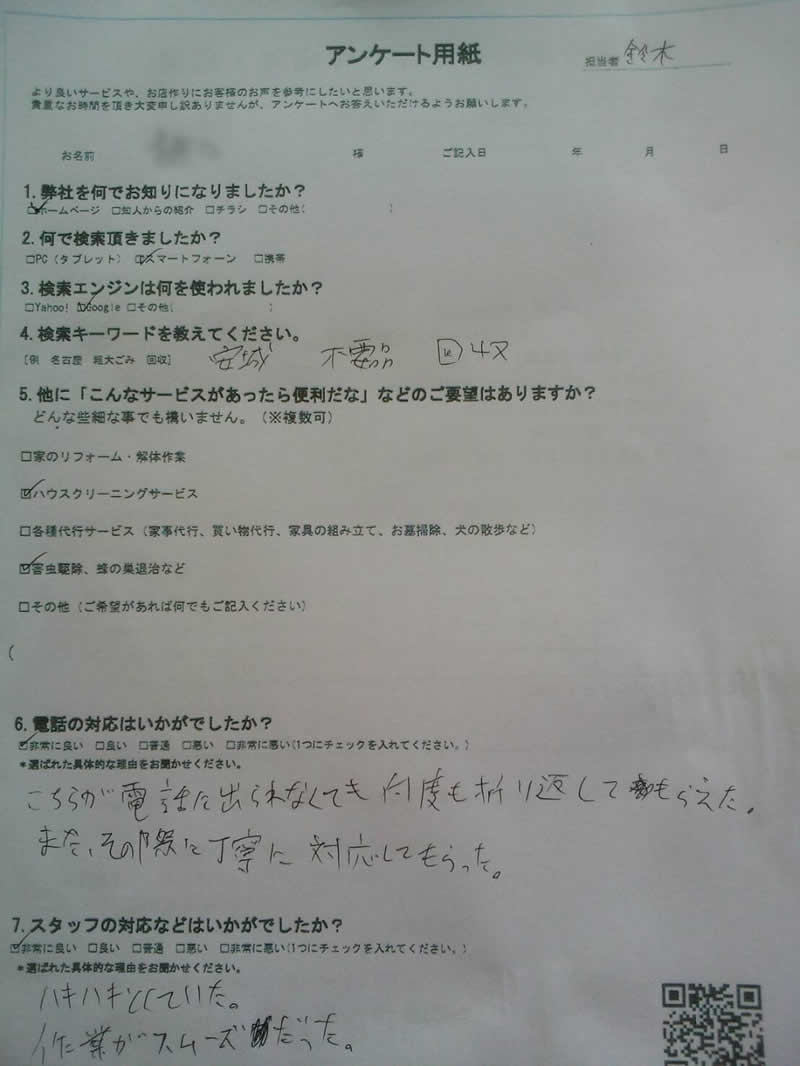 アンケート用紙
担当者 鈴木
より良いサービスや、お店作りにお客様のお声を参考にしたいと思います。
貴重なお時間を頂き大変申し訳ありませんが、アンケートへお答えいただけるようお願いします。
お名前 様 ご記入日 年 月 日
1. 弊社を何でお知りになりましたか?
☑ホームページ □知人からの紹介 □チラシ □その他( )
2. 何で検索頂きましたか?
□PC(タブレット) ☑スマートフォーン □携帯
3. 検索エンジンは何を使われましたか?
□Yahoo! ☑Google □その他( )
4. 検索キーワードを教えてください。
[例 名古屋 粗大ごみ 回収] 安城 不要品 回収
5. 他に「こんなサービスがあったら便利だな」などのご要望はありますか?
どんな些細な事でも構いません。(※複数可)
□家のリフォーム・解体作業
☑ハウスクリーニングサービス
□各種代行サービス(家事代行、買い物代行、家具の組み立て、お墓掃除、犬の散歩など)
☑害虫駆除、蜂の巣退治など
□その他(ご希望があれば何でもご記入ください)
(
6. 電話の対応はいかがでしたか?
☑非常に良い □良い □普通 □悪い □非常に悪い(1つにチェックを入れてください。)
*選ばれた具体的な理由をお聞かせください。
こちらが電話に出られなくても何度も折り返してもらえた。
また、その際に丁寧に対応してもらった。
7. スタッフの対応などはいかがでしたか?
☑非常に良い □良い □普通 □悪い □非常に悪い(1つにチェックを入れてください。)
*選ばれた具体的な理由をお聞かせください。
ハキハキとしていた。
作業がスムーズだった。